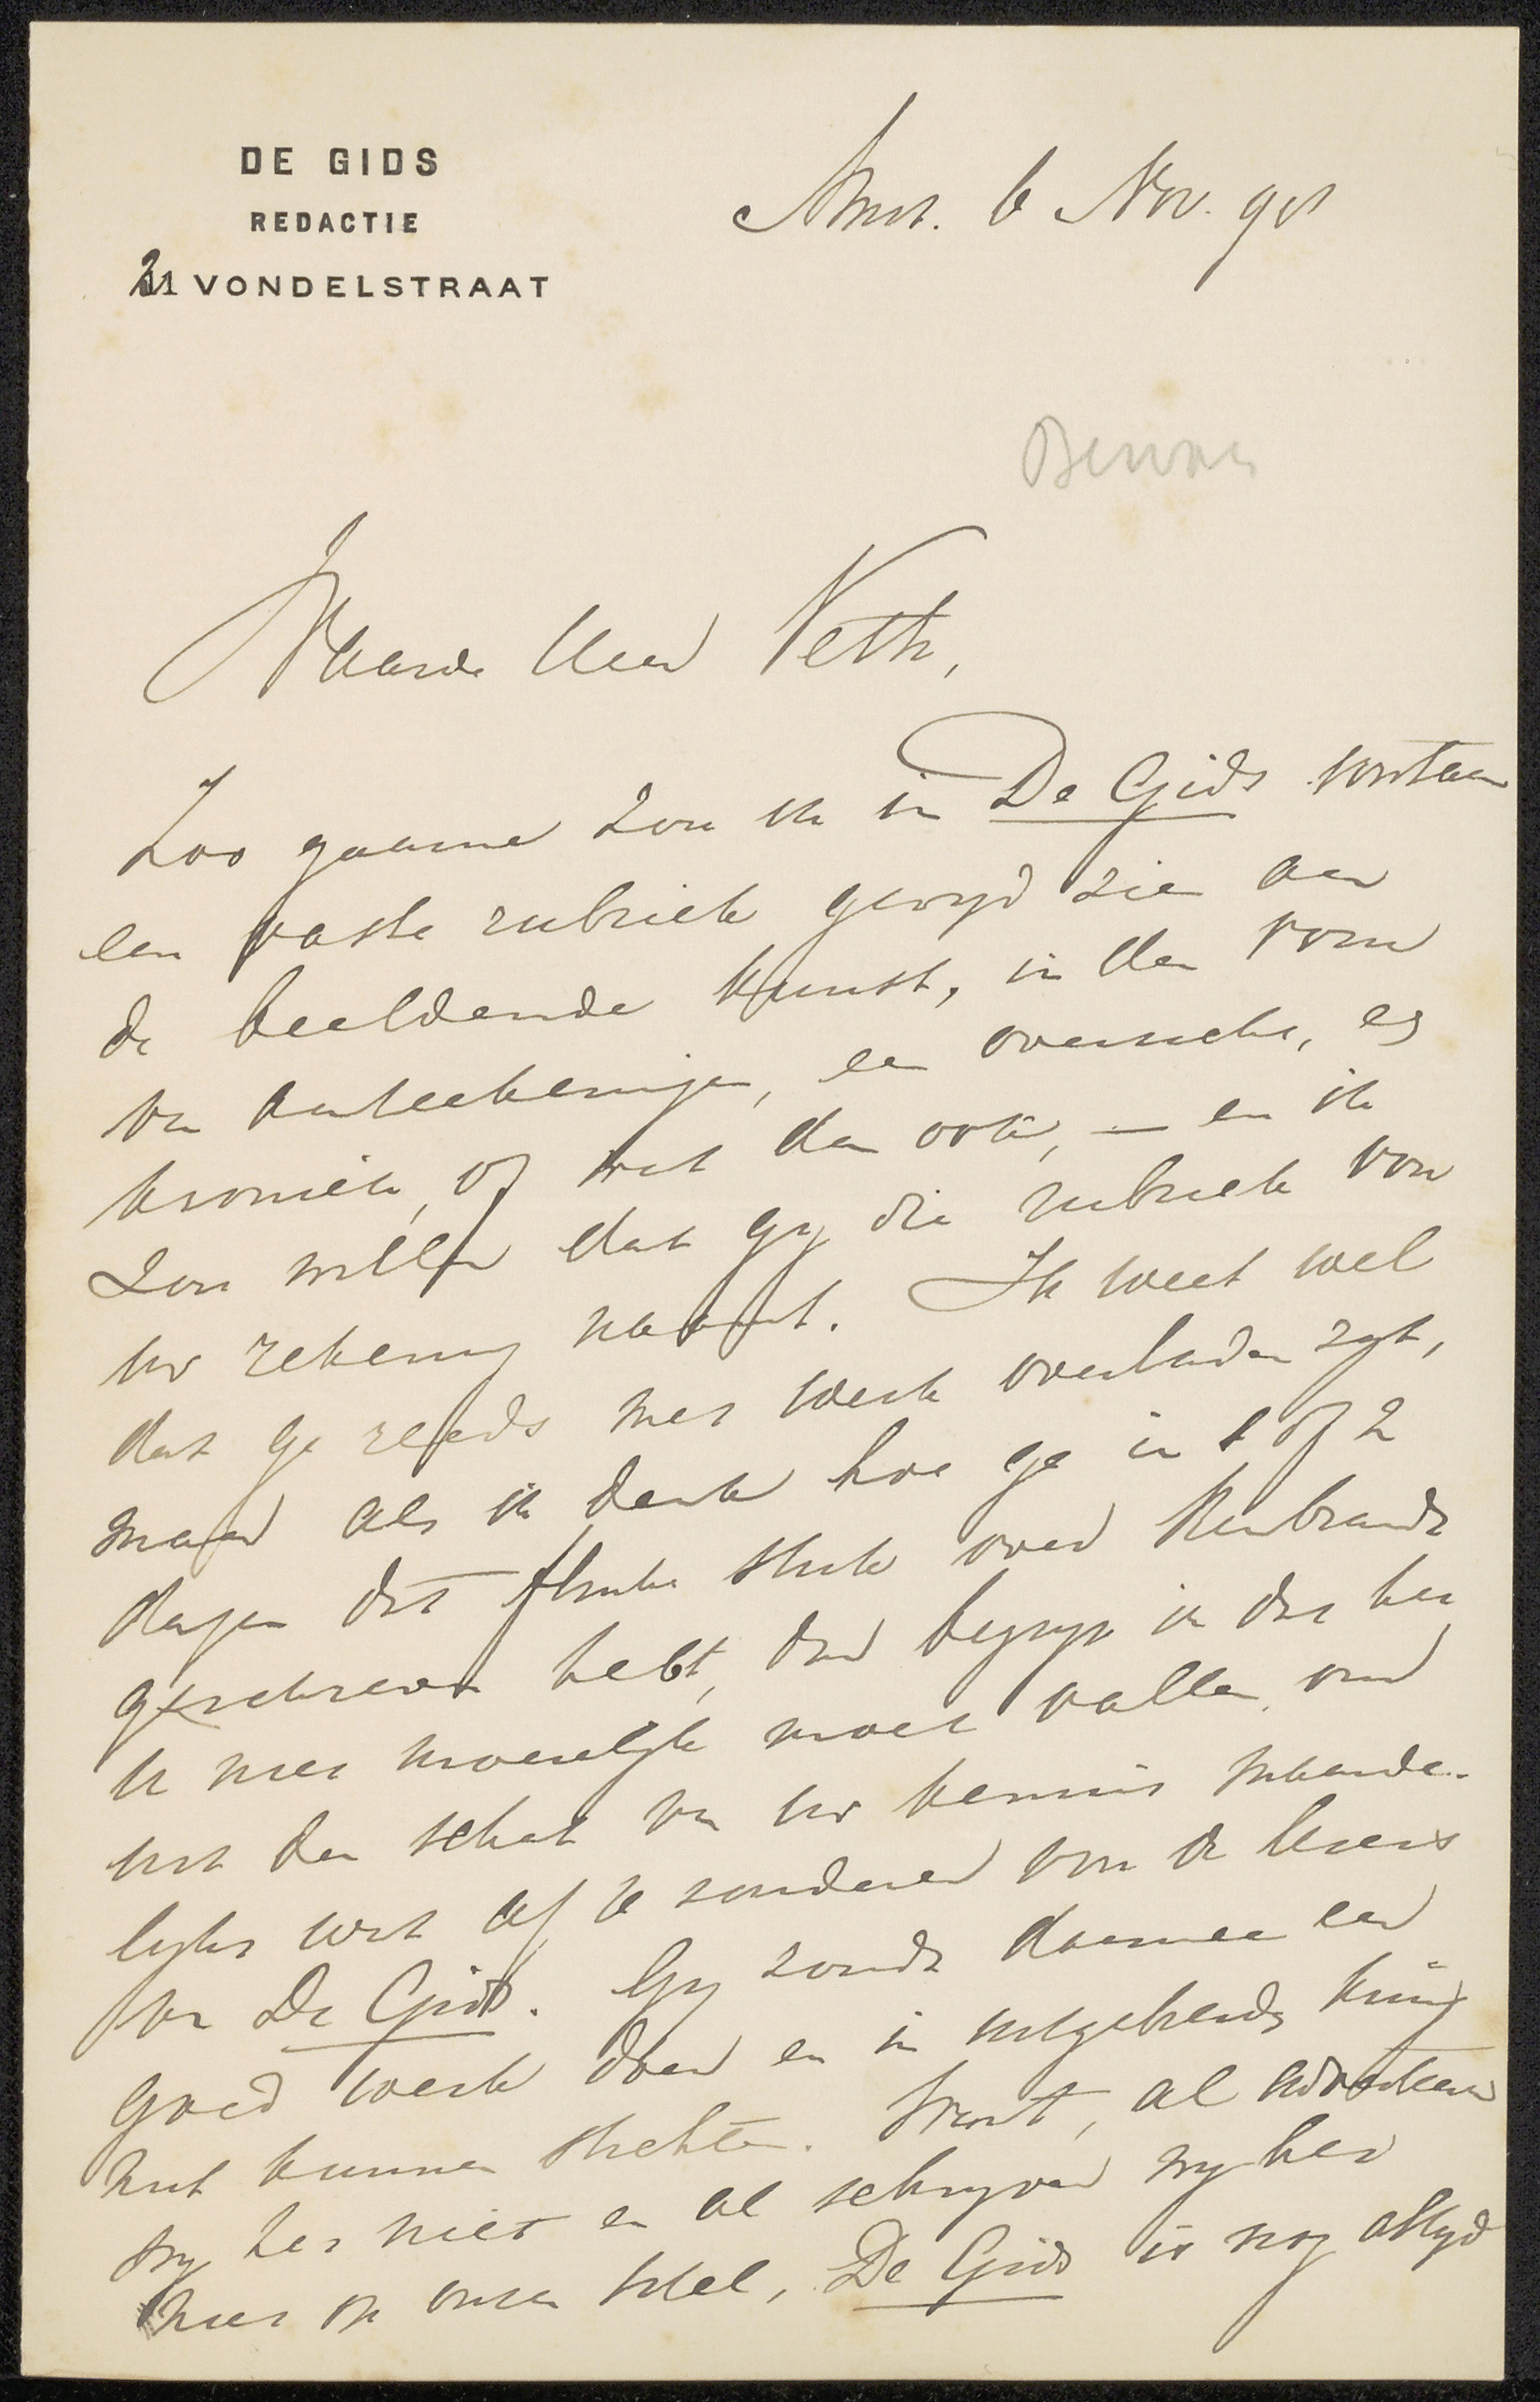 DE GIDS
REDACTIE
21 VONDELSTRAAT
Amst. 6 Nov. 98
Waarde Heer Veth,
Zoo gaarne zou ik in De Gids voortaan
een vaste rubriek gewijd zien aan
de beeldende kunst, in den vorm
van aanteekeningen, een overzicht, een
kroniek, of wat dan ook, — en ik
zou willen dat gij die rubriek voor
uw rekening naamt. Ik weet wel
dat ge reeds met werk overladen zijt,
maar als ik denk hoe ge in 1 of 2
dagen dat flinke stuk over Rembrandt
geschreven hebt, dan begrijp ik dat het
u niet moeielijk moet vallen om
uit den schat van uw kennis maande-
lijks wat af te zonderen voor de lezers
van De Gids. Gij zoudt daarmee een
goed werk doen en in uitgebreide kring
nut kunnen stichten. Want, al adverteeren
wij het niet en al schrijven wij het
niet op onzen titel, De Gids is nog altijd